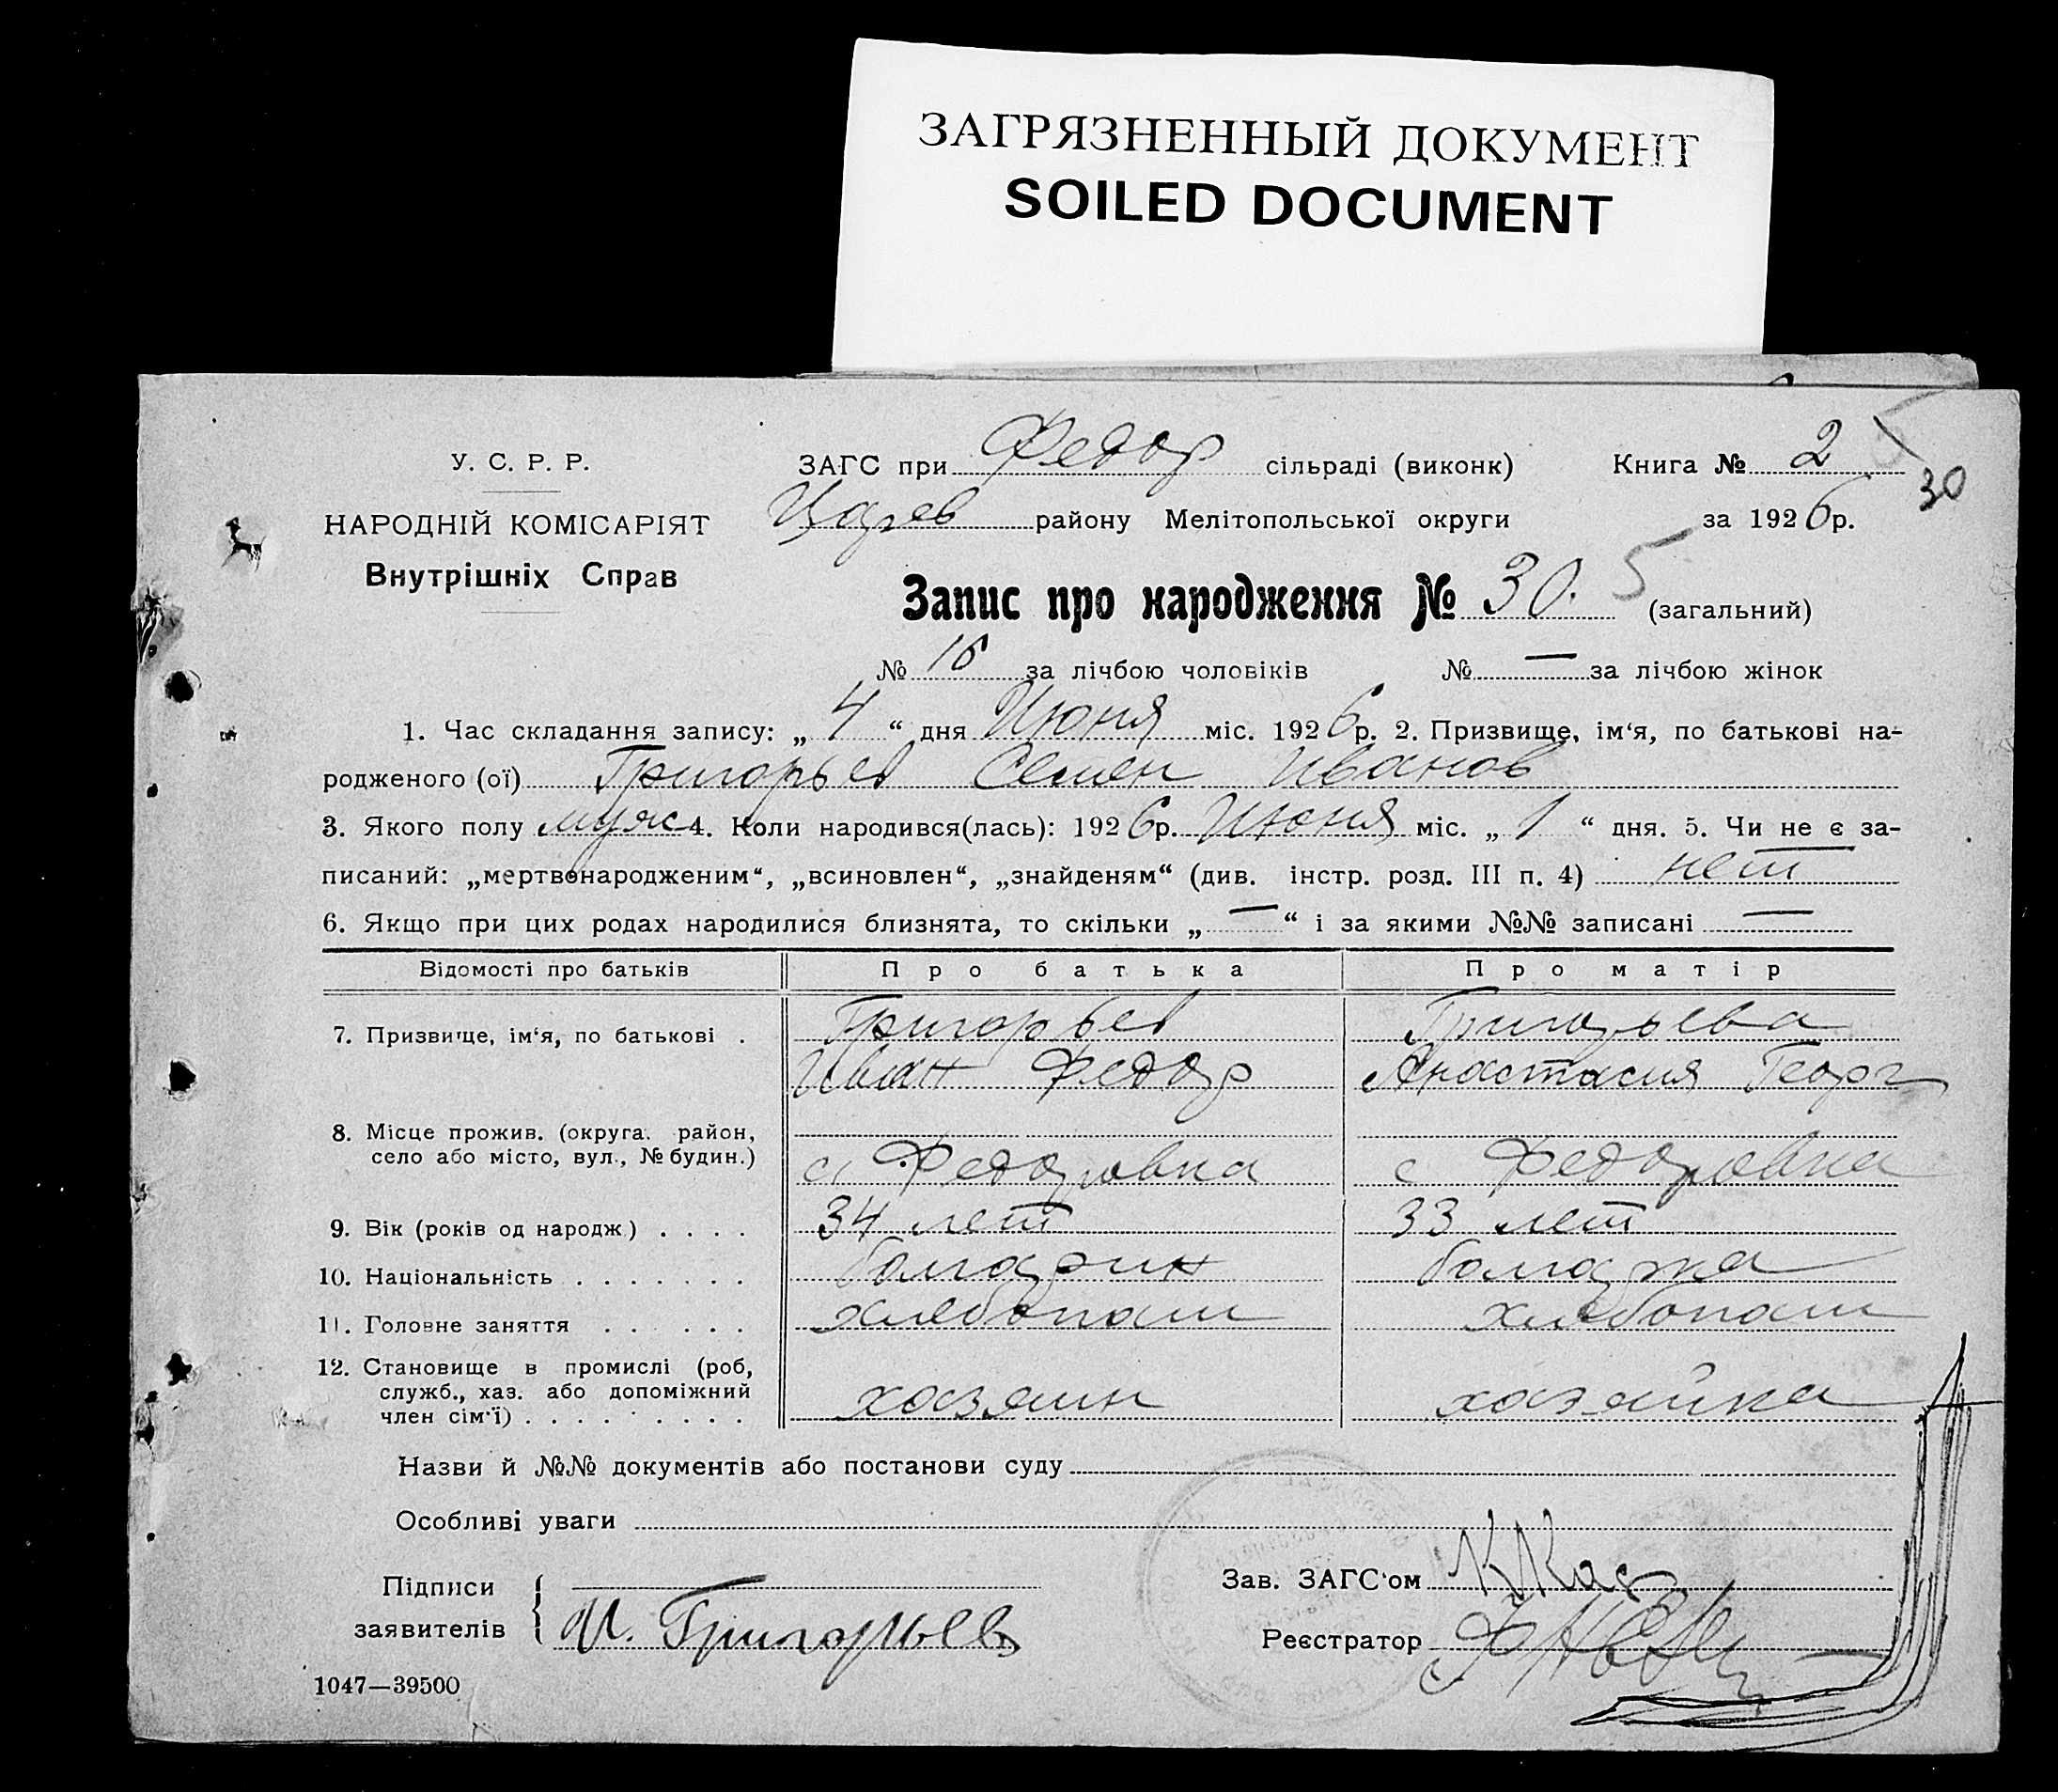 ЗАГРЯЗНЕННЫЙ ДОКУМЕНТ
SOILED DOCUMENT
У. С. Р. Р.
НАРОДНІЙ КОМІСАРІЯТ
Внутрішніх Справ
ЗАГС при Федор сільраді (виконк) Книга № 2
30
Царев району Мелітопольської округи за 1926р.
Запис про народження № 30. 5 (загальний)
№ 16 за лічбою чоловіків № — за лічбою жінок
1. Час складання запису: „ 4 “ дня Июня міс. 1926р. 2. Призвище, ім‘я, по батькові на-
родженого (ої) Григорьев Семен Иванов
3. Якого полу муж 4. Коли народився(лась): 1926р. Июня міс. „ 1 “ дня. 5. Чи не є за-
писаний: „мертвонародженим“, „всиновлен“, „знайденям“ (див. інстр. розд. III п. 4) нет
6. Якщо при цих родах народилися близнята, то скільки „ — “ і за якими №№ записані —
Відомості про батьків Про батька Про матір
7. Призвище, ім‘я, по батькові . Григорьев Григорьева
Иван Федор Анастасия Георг
8. Місце прожив. (округа. район,
село або місто, вул., № будин.) с. Федоровка с Федоровка
9. Вік (років од народж) . . . . 34 лет 33 лет
10. Національність . . . . . . . болгарин болгарка
11. Головне заняття . . . . . . хлебопаш хлебопаш
12. Становище в промислі (роб,
служб., хаз. або допоміжний
член сім‘ї) . . . . . . . . . хозяин хозяйка
Назви й №№ документів або постанови суду
Особливі уваги
Підписи
заявителів И. Григорьев
Зав. ЗАГС‘ом
Реєстратор
1047—39500